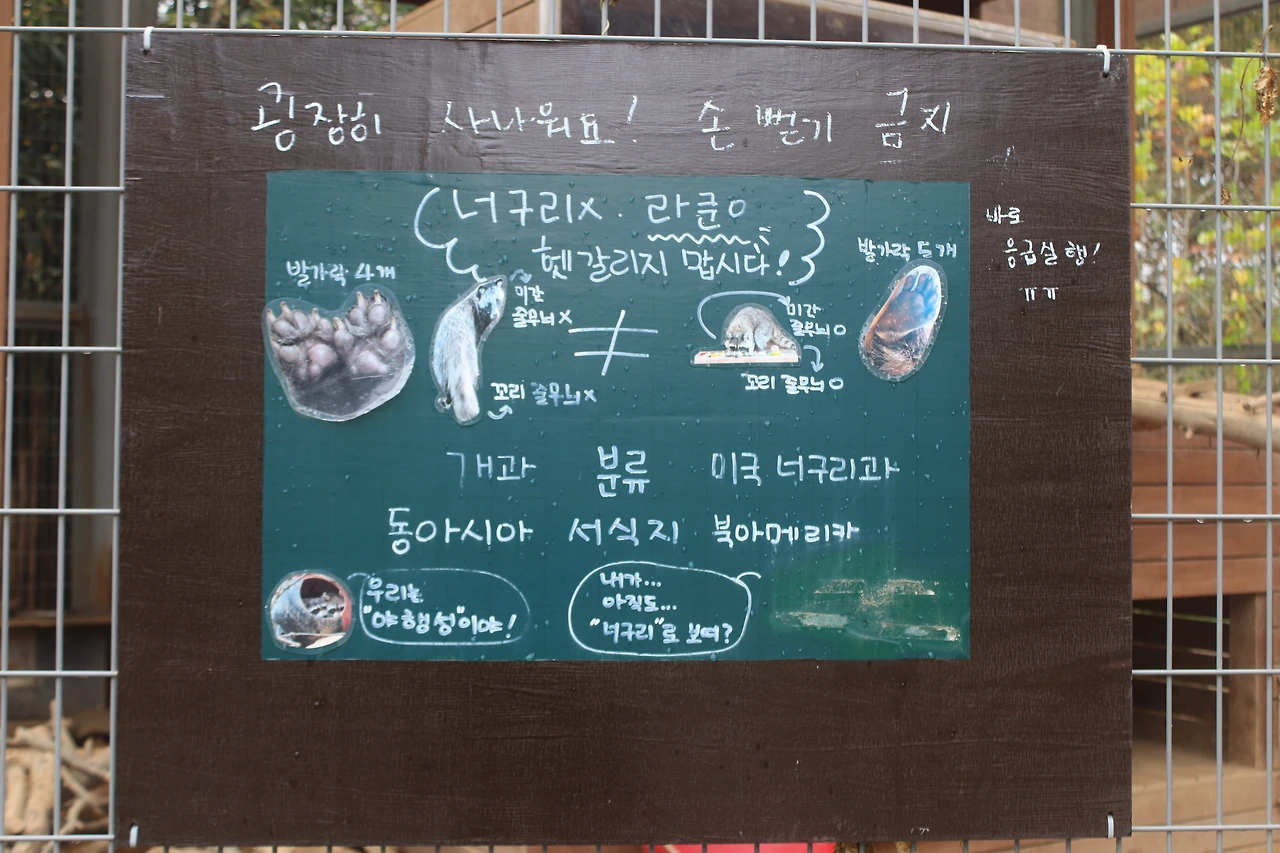 굉장히 사나워요! 손 뻗기 금지
바로
응급실 행!
ㅠㅠ
너구리x · 라쿤o
헷갈리지 맙시다!
발가락 4개
미간
줄무늬 x
꼬리 줄무늬 x
≠
미간
줄무늬 o
꼬리 줄무늬 o
발가락 5개
개과 분류 미국 너구리과
동아시아 서식지 북아메리카
우리는
"야행성"이야!
내가...
아직도...
"너구리"로 보여?